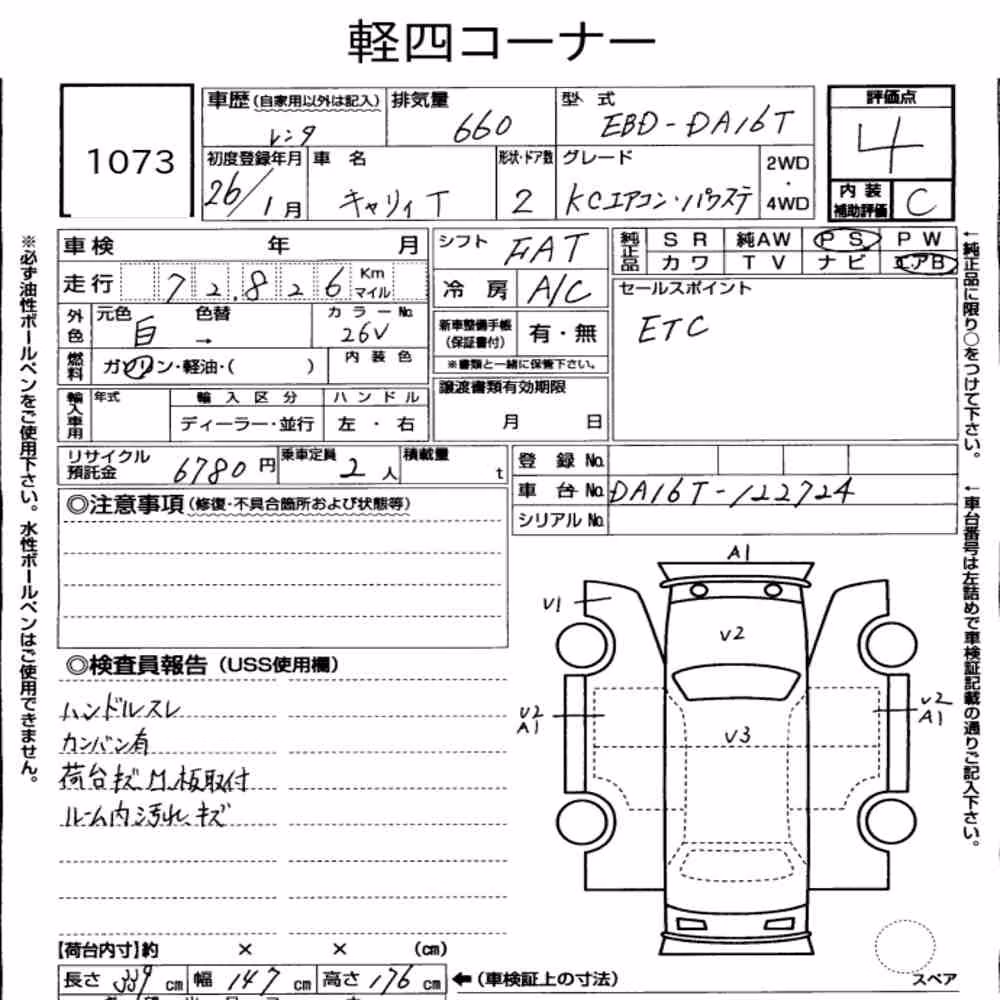 軽四コーナー
1073
車歴 (自家用以外は記入)
レンタ
排気量
660
型式
EBD-DA16T
評価点
4
初度登録年月
26/1月
車名
キャリィT
形状・ドア数
2
グレード
KCエアコン・パワステ
2WD
・
4WD
内装
補助評価
C
車検 年 月
シフト
FAT
純正品
SR 純AW PS PW
カワ TV ナビ エアB
走行 72,826 Km
マイル
冷房 A/C
セールスポイント
ETC
外色
元色 色替
白 →
カラーNo.
26V
新車整備手帳
(保証書付)
有・無
※書類と一緒に保管下さい。
燃料
ガソリン・軽油・( )
内装色
譲渡書類有効期限
月 日
輸入車用
年式
輸入区分
ディーラー・並行
ハンドル
左・右
リサイクル
預託金
6780円
乗車定員
2人
積載量
t
登録No.
車台No. DA16T-122724
シリアルNo.
◎注意事項(修復・不具合箇所および状態等)
◎検査員報告(USS使用欄)
ハンドルスレ
カンバン有
荷台キズ凹、板取付
ルーム内汚れ、キズ
A1
V1
V2
V2
A1
V2
A1
V3
スペア
【荷台内寸】約 × × (cm)
長さ 339 cm 幅 147 cm 高さ 176 cm
←(車検証上の寸法)
※必ず油性ボールペンをご使用下さい。水性ボールペンはご使用できません。
←純正品に限り○をつけて下さい。
←車台番号は左詰めで車検証記載の通りご記入下さい。